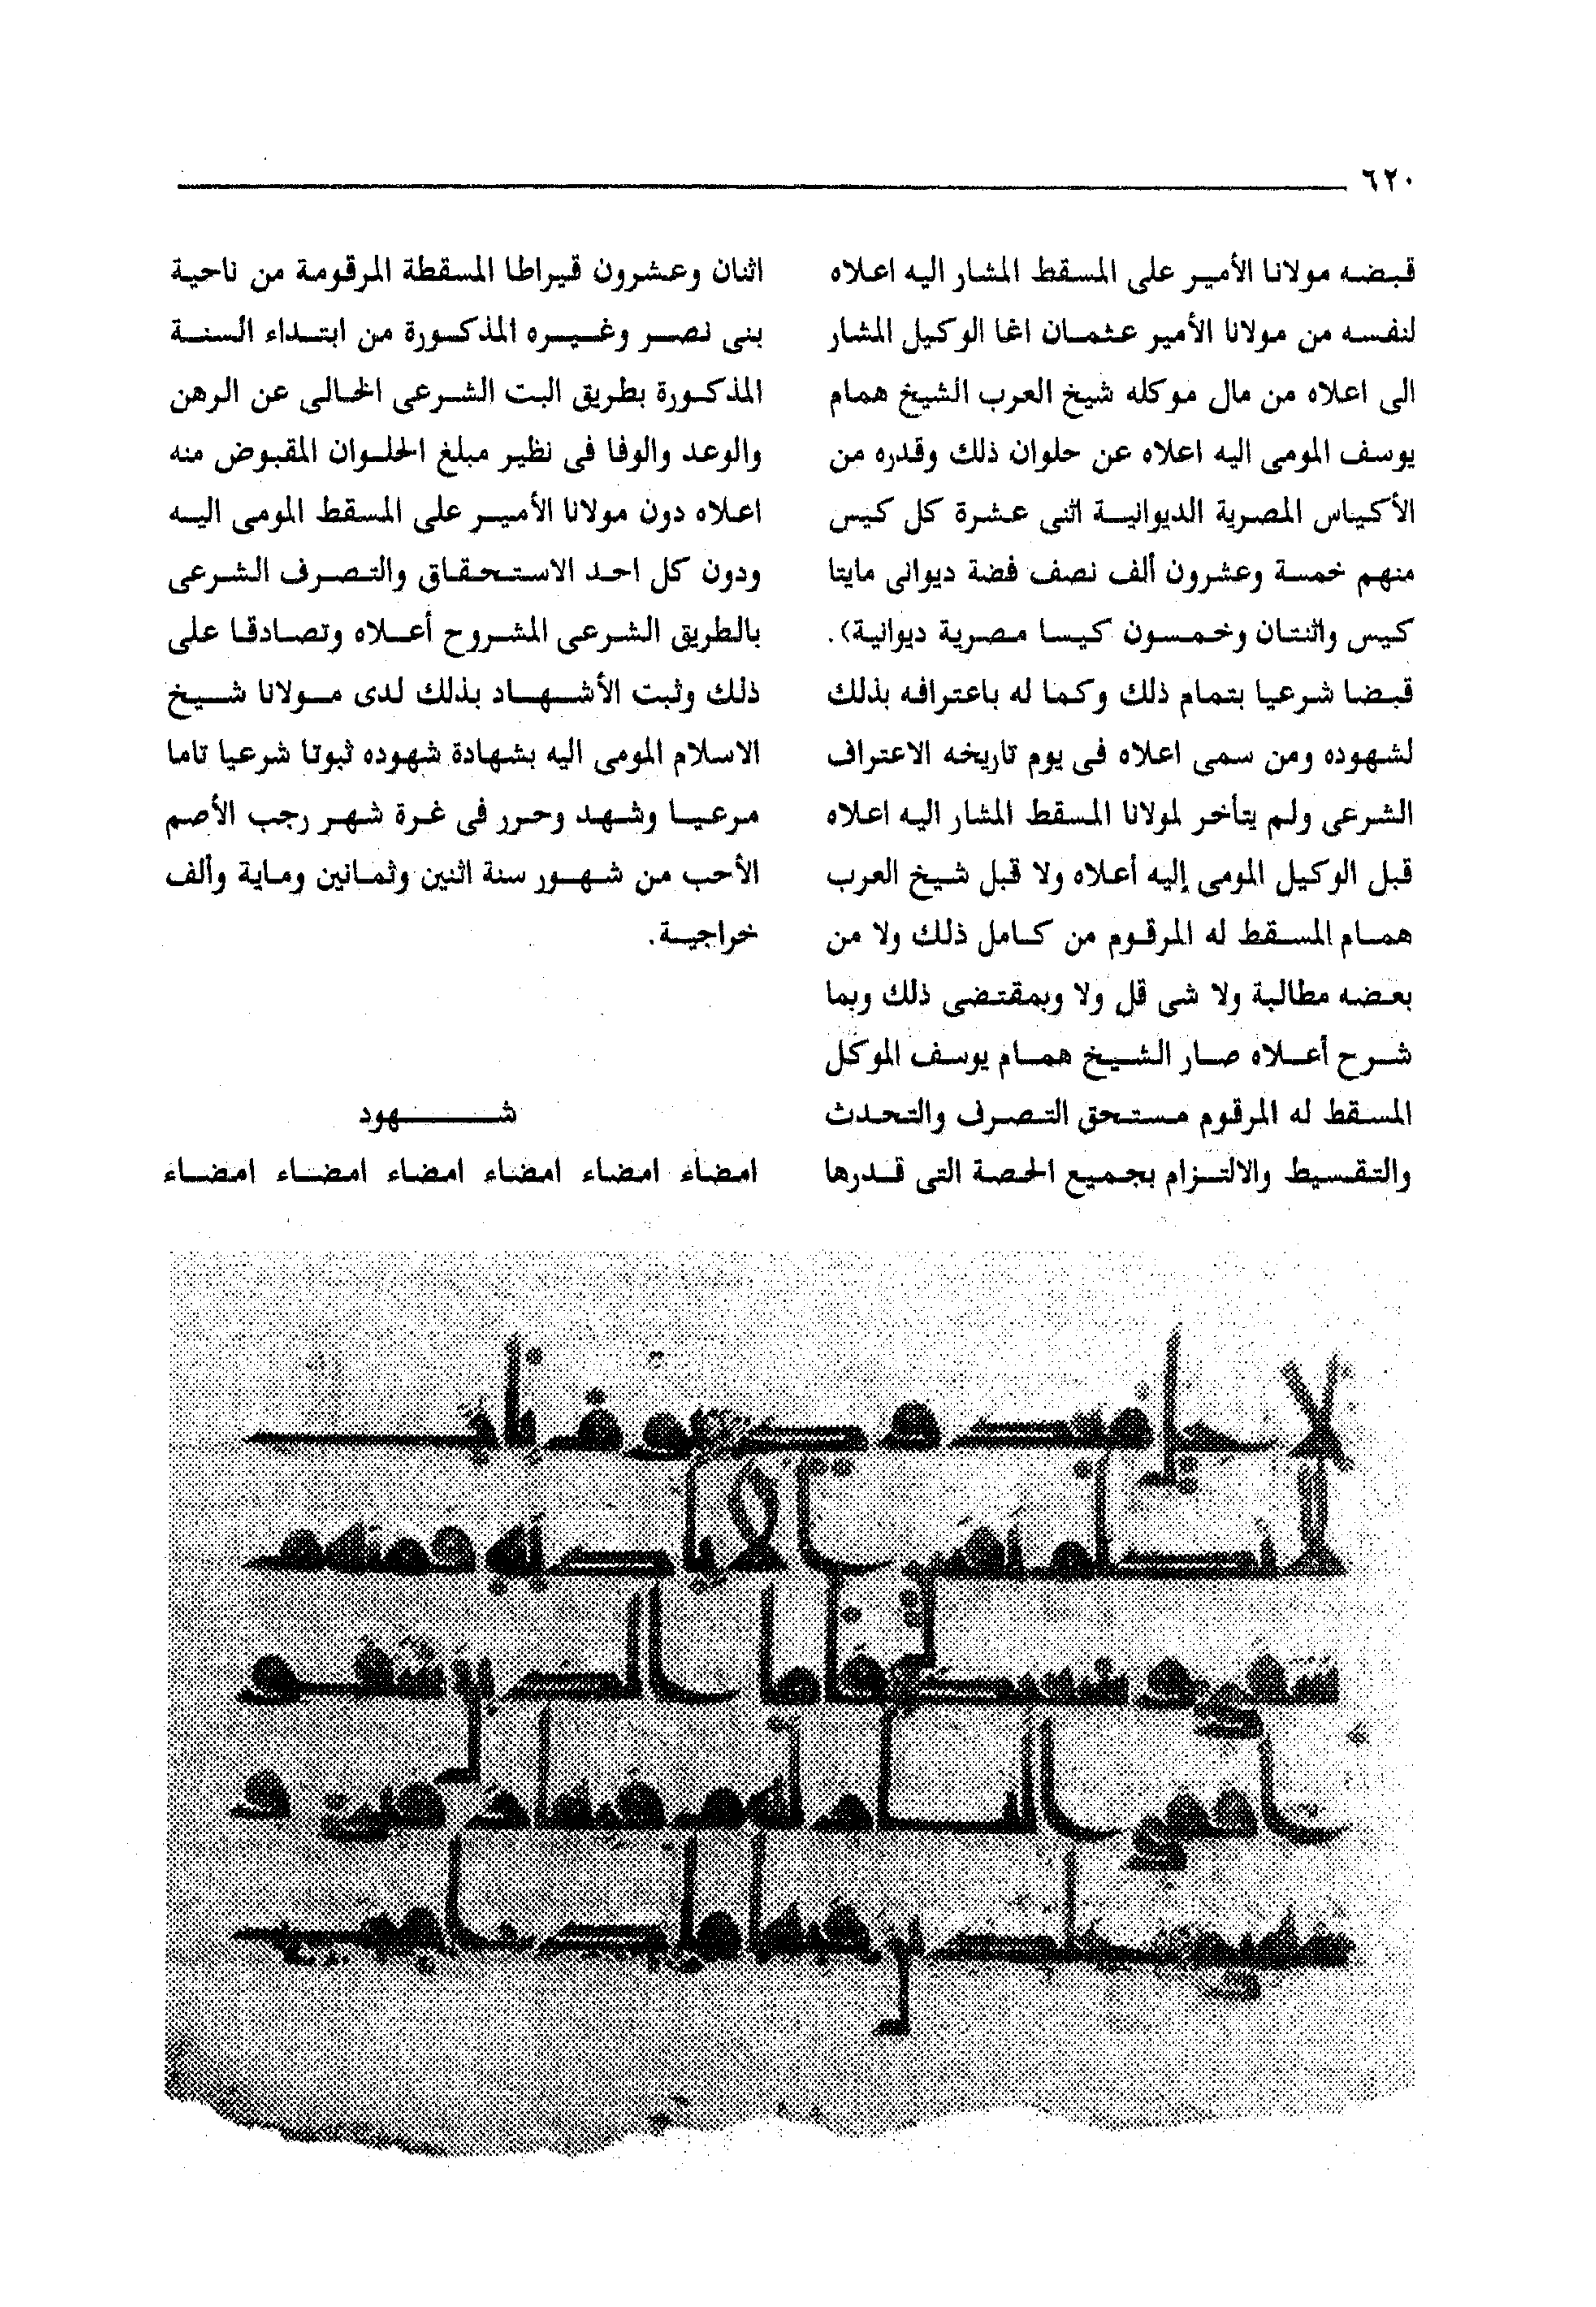 ٦٢٠
قبضه مولانا الأمير على المسقط المشار اليه اعلاه
لنفسه من مولانا الأمير عثمان اغا الوكيل المشار
الى اعلاه من مال موكله شيخ العرب الشيخ همام
يوسف المومى اليه اعلاه عن حلوان ذلك وقدره من
الأكياس المصرية الديوانية اثنى عشرة كل كيس
منهم خمسة وعشرون ألف نصف فضة ديوانى مايتا
كيس واثنتان وخمسون كيسا مصرية ديوانية).
قبضا شرعيا بتمام ذلك وكما له باعترافه بذلك
لشهوده ومن سمى اعلاه فى يوم تاريخه الاعتراف
الشرعى ولم يتأخر لمولانا المسقط المشار اليه اعلاه
قبل الوكيل المومى إليه أعلاه ولا قبل شيخ العرب
همام المسقط له المرقوم من كامل ذلك ولا من
بعضه مطالبة ولا شى قل ولا وبمقتضى ذلك وبما
شرح أعلاه صار الشيخ همام يوسف الموكل
المسقط له المرقوم مستحق التصرف والتحدث
والتقسيط والالتزام بجميع الحصة التى قدرها
اثنان وعشرون قيراطا المسقطة المرقومة من ناحية
بنى نصر وغيره المذكورة من ابتداء السنة
المذكورة بطريق البت الشرعى الخالى عن الرهن
والوعد والوفا فى نظير مبلغ الحلوان المقبوض منه
اعلاه دون مولانا الأمير على المسقط المومى اليه
ودون كل احد الاستحقاق والتصرف الشرعى
بالطريق الشرعى المشروح أعلاه وتصادقا على
ذلك وثبت الأشهاد بذلك لدى مولانا شيخ
الاسلام المومى اليه بشهادة شهوده ثبوتا شرعيا تاما
مرعيا وشهد وحرر فى غرة شهر رجب الأصم
الأحب من شهور سنة اثنين وثمانين وماية وألف
خراجية.
شهود
امضاء امضاء امضاء امضاء امضاء امضاء
لا جل معدود يوم يات
لا تكلم نفس الا باذنه فمنهم
شقي وسعيد فاما الذين شقو
ا ففي النار لهم فيها زفير و
شهيق خلدين فيها ما دامت